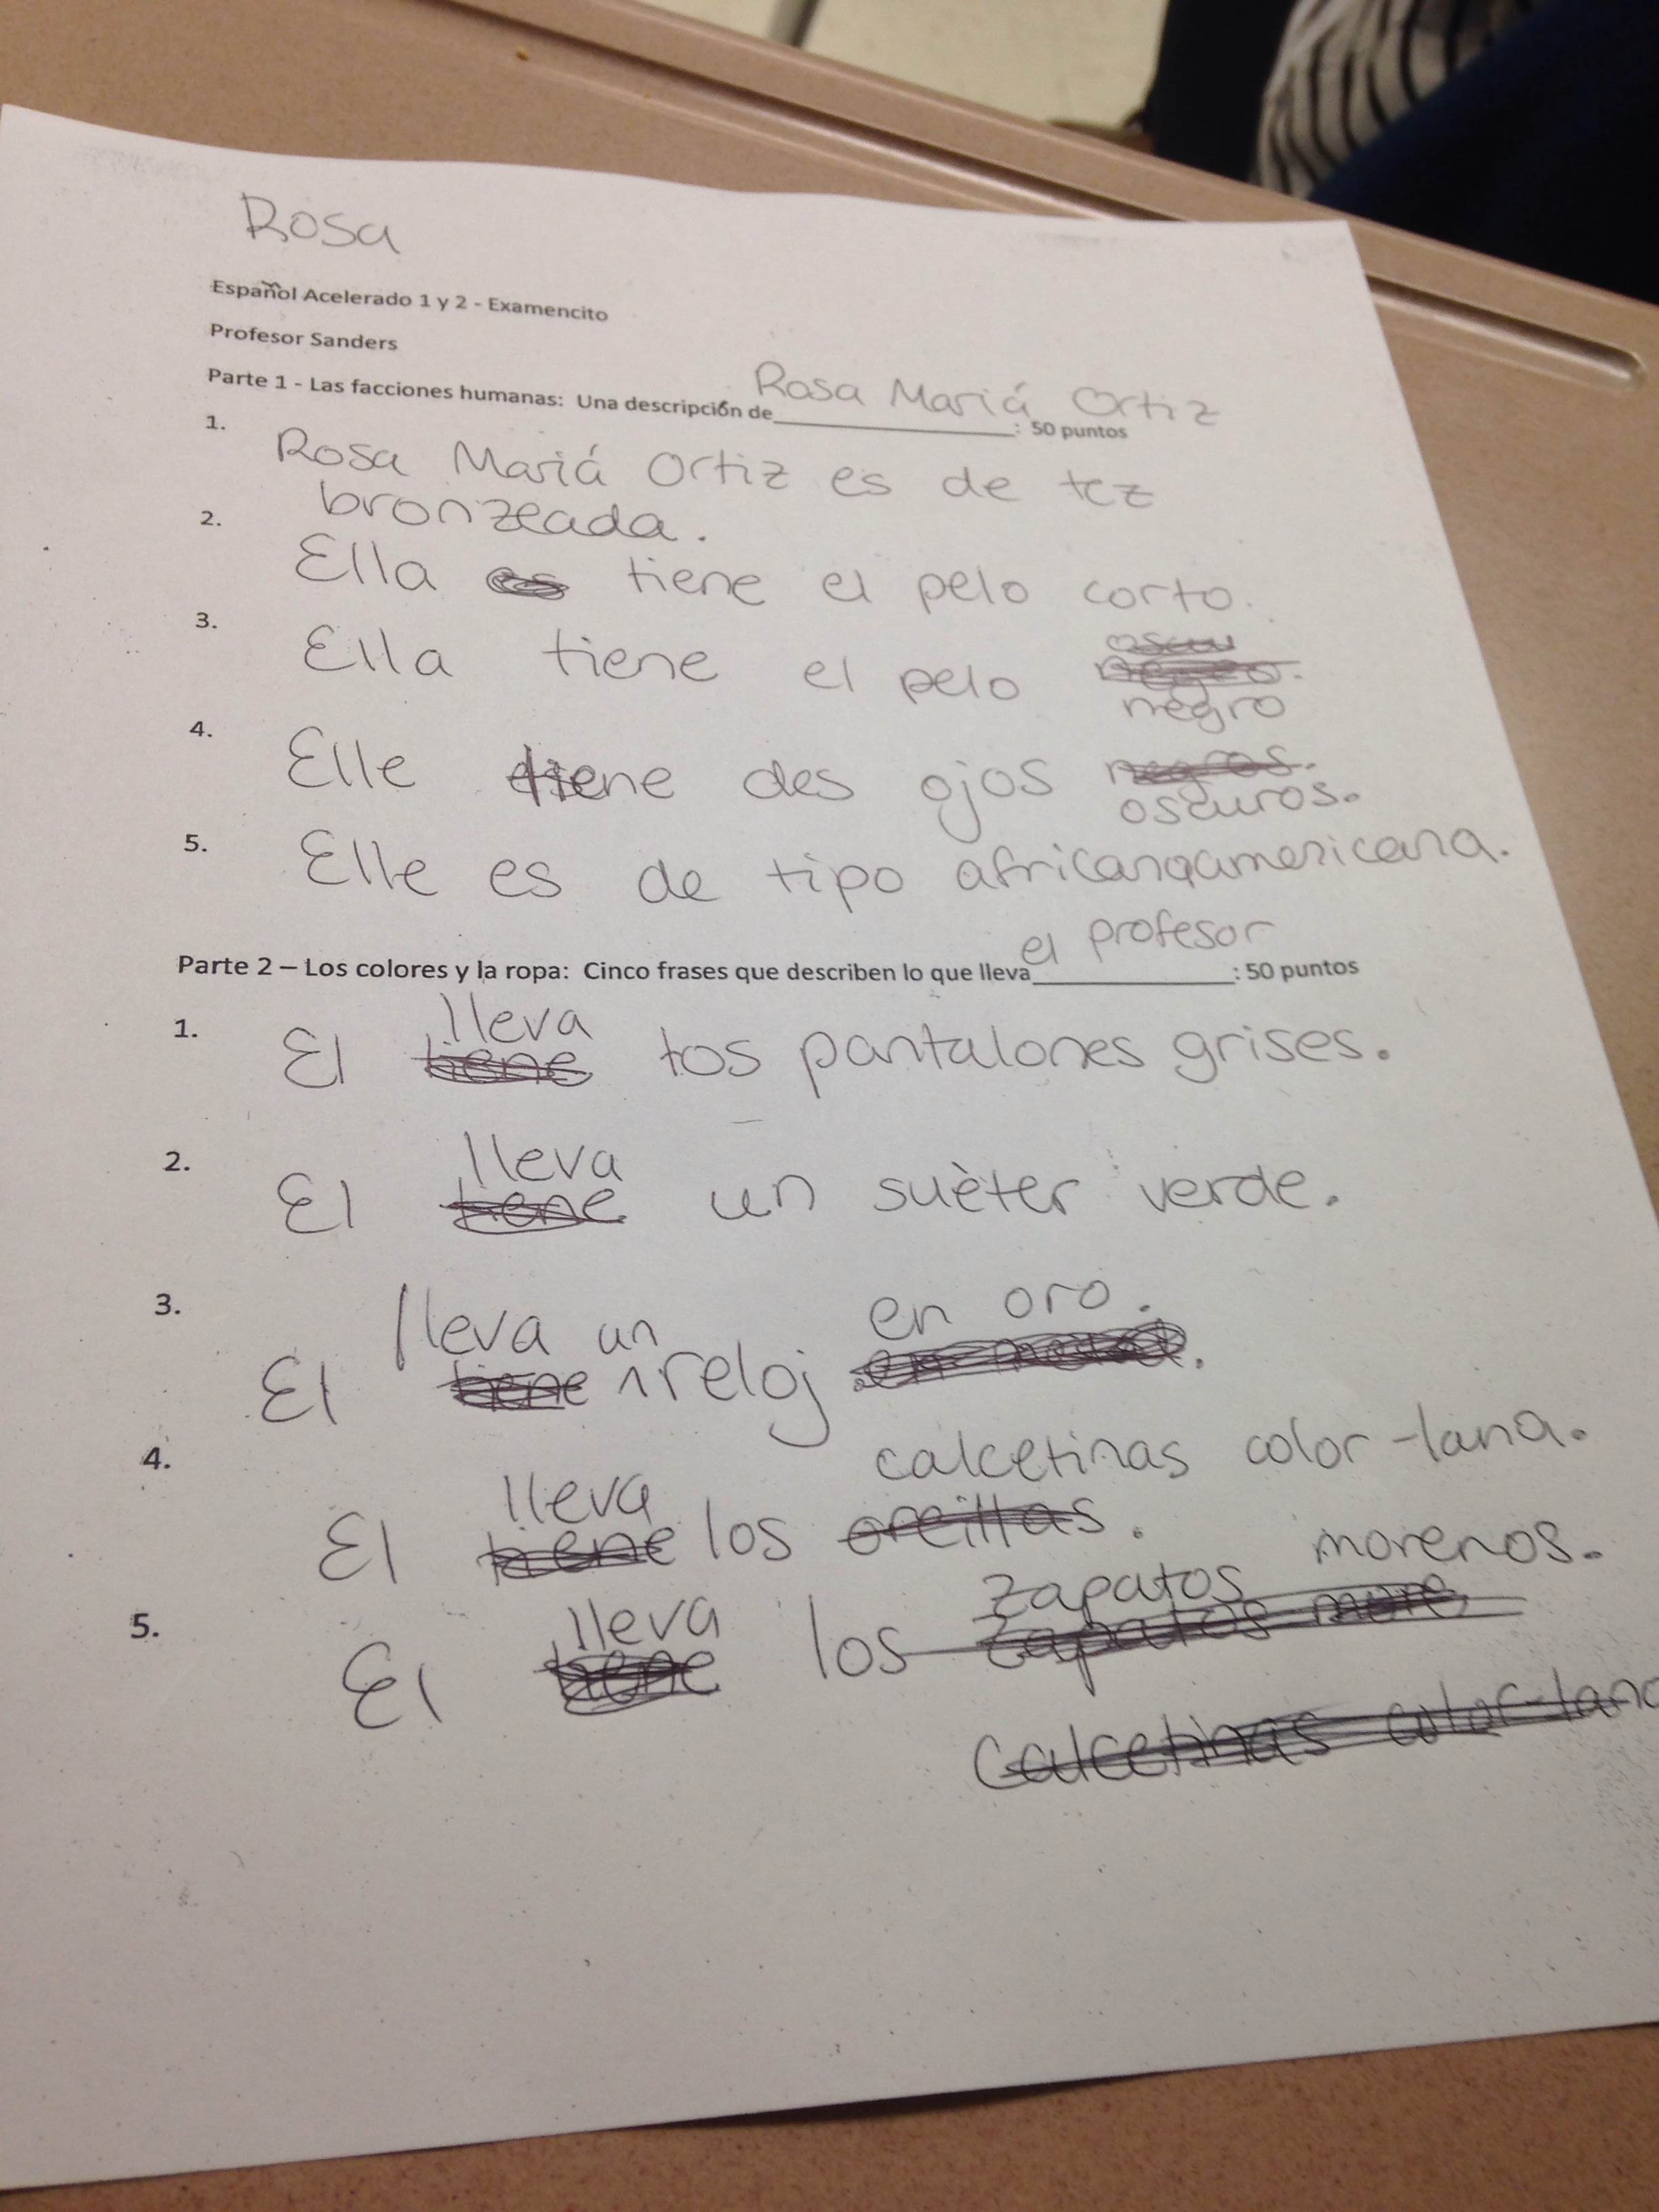 Rosa
Español Acelerado 1 y 2 - Examencito
Profesor Sanders
Parte 1 - Las facciones humanas: Una descripción de Rosa Mariá Ortiz : 50 puntos
1. Rosa Mariá Ortiz es de tez
bronzeada.
2. Ella es tiene el pelo corto.
3. Ella tiene el pelo negro
4. Elle tiene des ojos negros.
oscuros.
5. Elle es de tipo africanaamericana.
Parte 2 – Los colores y la ropa: Cinco frases que describen lo que lleva el profesor : 50 puntos
lleva
1. El tiene tos pantalones grises.
lleva
2. El tiene un suèter verde.
lleva un en oro.
3. El tiene reloj
calcetinas color-lana.
lleva
4. El tiene los oreillas.
zapatos morenos.
lleva
5. El tiene los zapatos more
Calcetinas color-lana